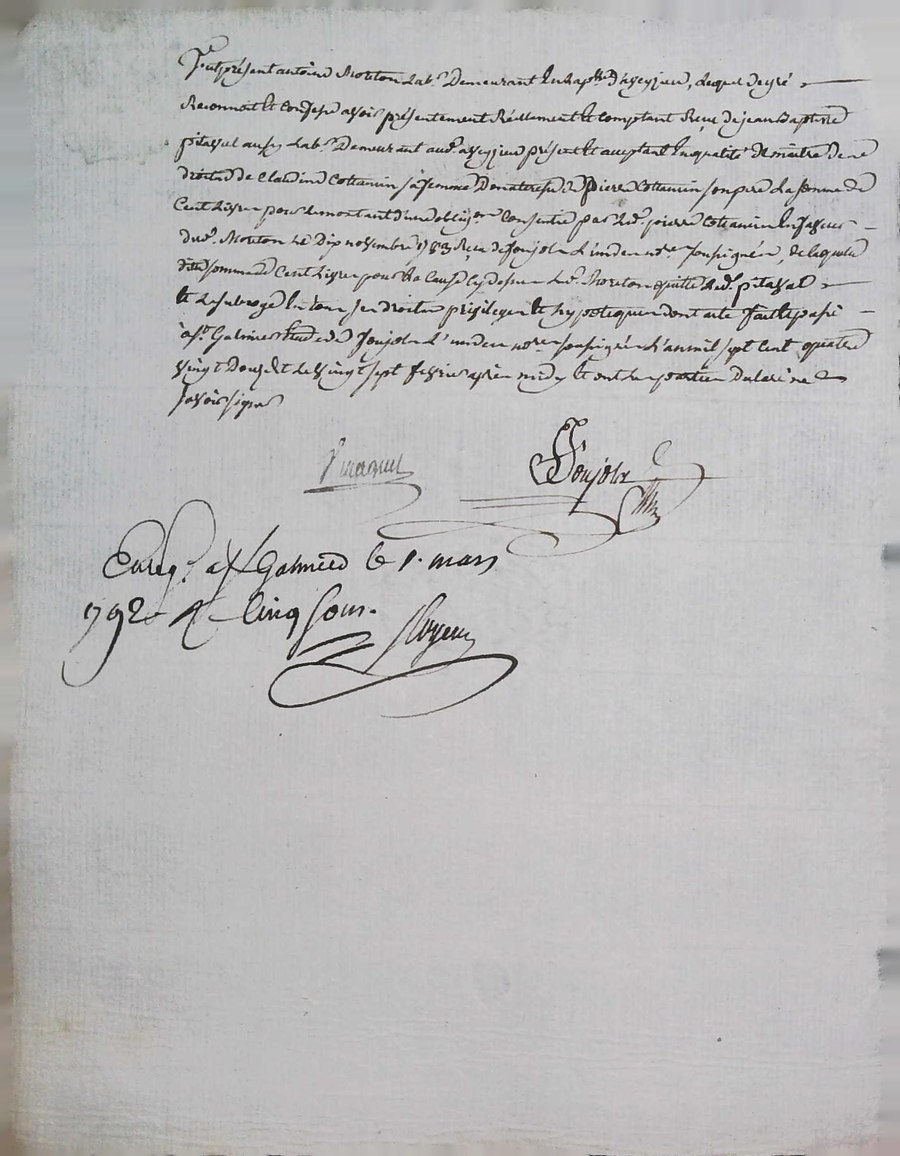 Fut présent antoine Moreton Lab.r Demeurant En La p.sse d'aveyzieu, Lequel de gré
Reconnoit Et Confesse avoir présentement Réellement Et Comptant Reçu de jean Baptiste
pitaval aussy Lab.r Demeurant aud. aveyzieu présent Et acceptant En qualité De maitre des
droits de Claudine Cottancin sa femme Donataire de pierre Cottancin son pere La somme de
Cent Livres pour Le montant d'une oblig.on Consentie par Led. pierre Cottancin En faveur
dud. Moreton Le Dix novembre 1783 Reçu de Ponjols L'un des no.res soussignés, de laquelle
ditte somme de Cent Livres pour La Cause Cy dessus Led. Moreton quitte Led. pitaval
Et Le subroge En tous ses droits privileges Et hypoteques dont acte fait Et passé
à S.t Galmier Etude de Ponjols L'un des no.res soussignés L'an mil sept Cent quatre
vingt Douze Et Le vingt sept fevrier après midy Et ont Les parties Declaré ne
savoir signer
Ponjols
Enreg.é a St Galmier le 1. mars
1792 R cinq sous.